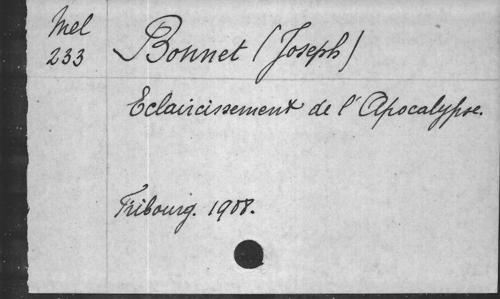 Mel
233
Bonnet (Joseph)
Eclaircissement de l'Apocalypse.
Fribourg. 1908.